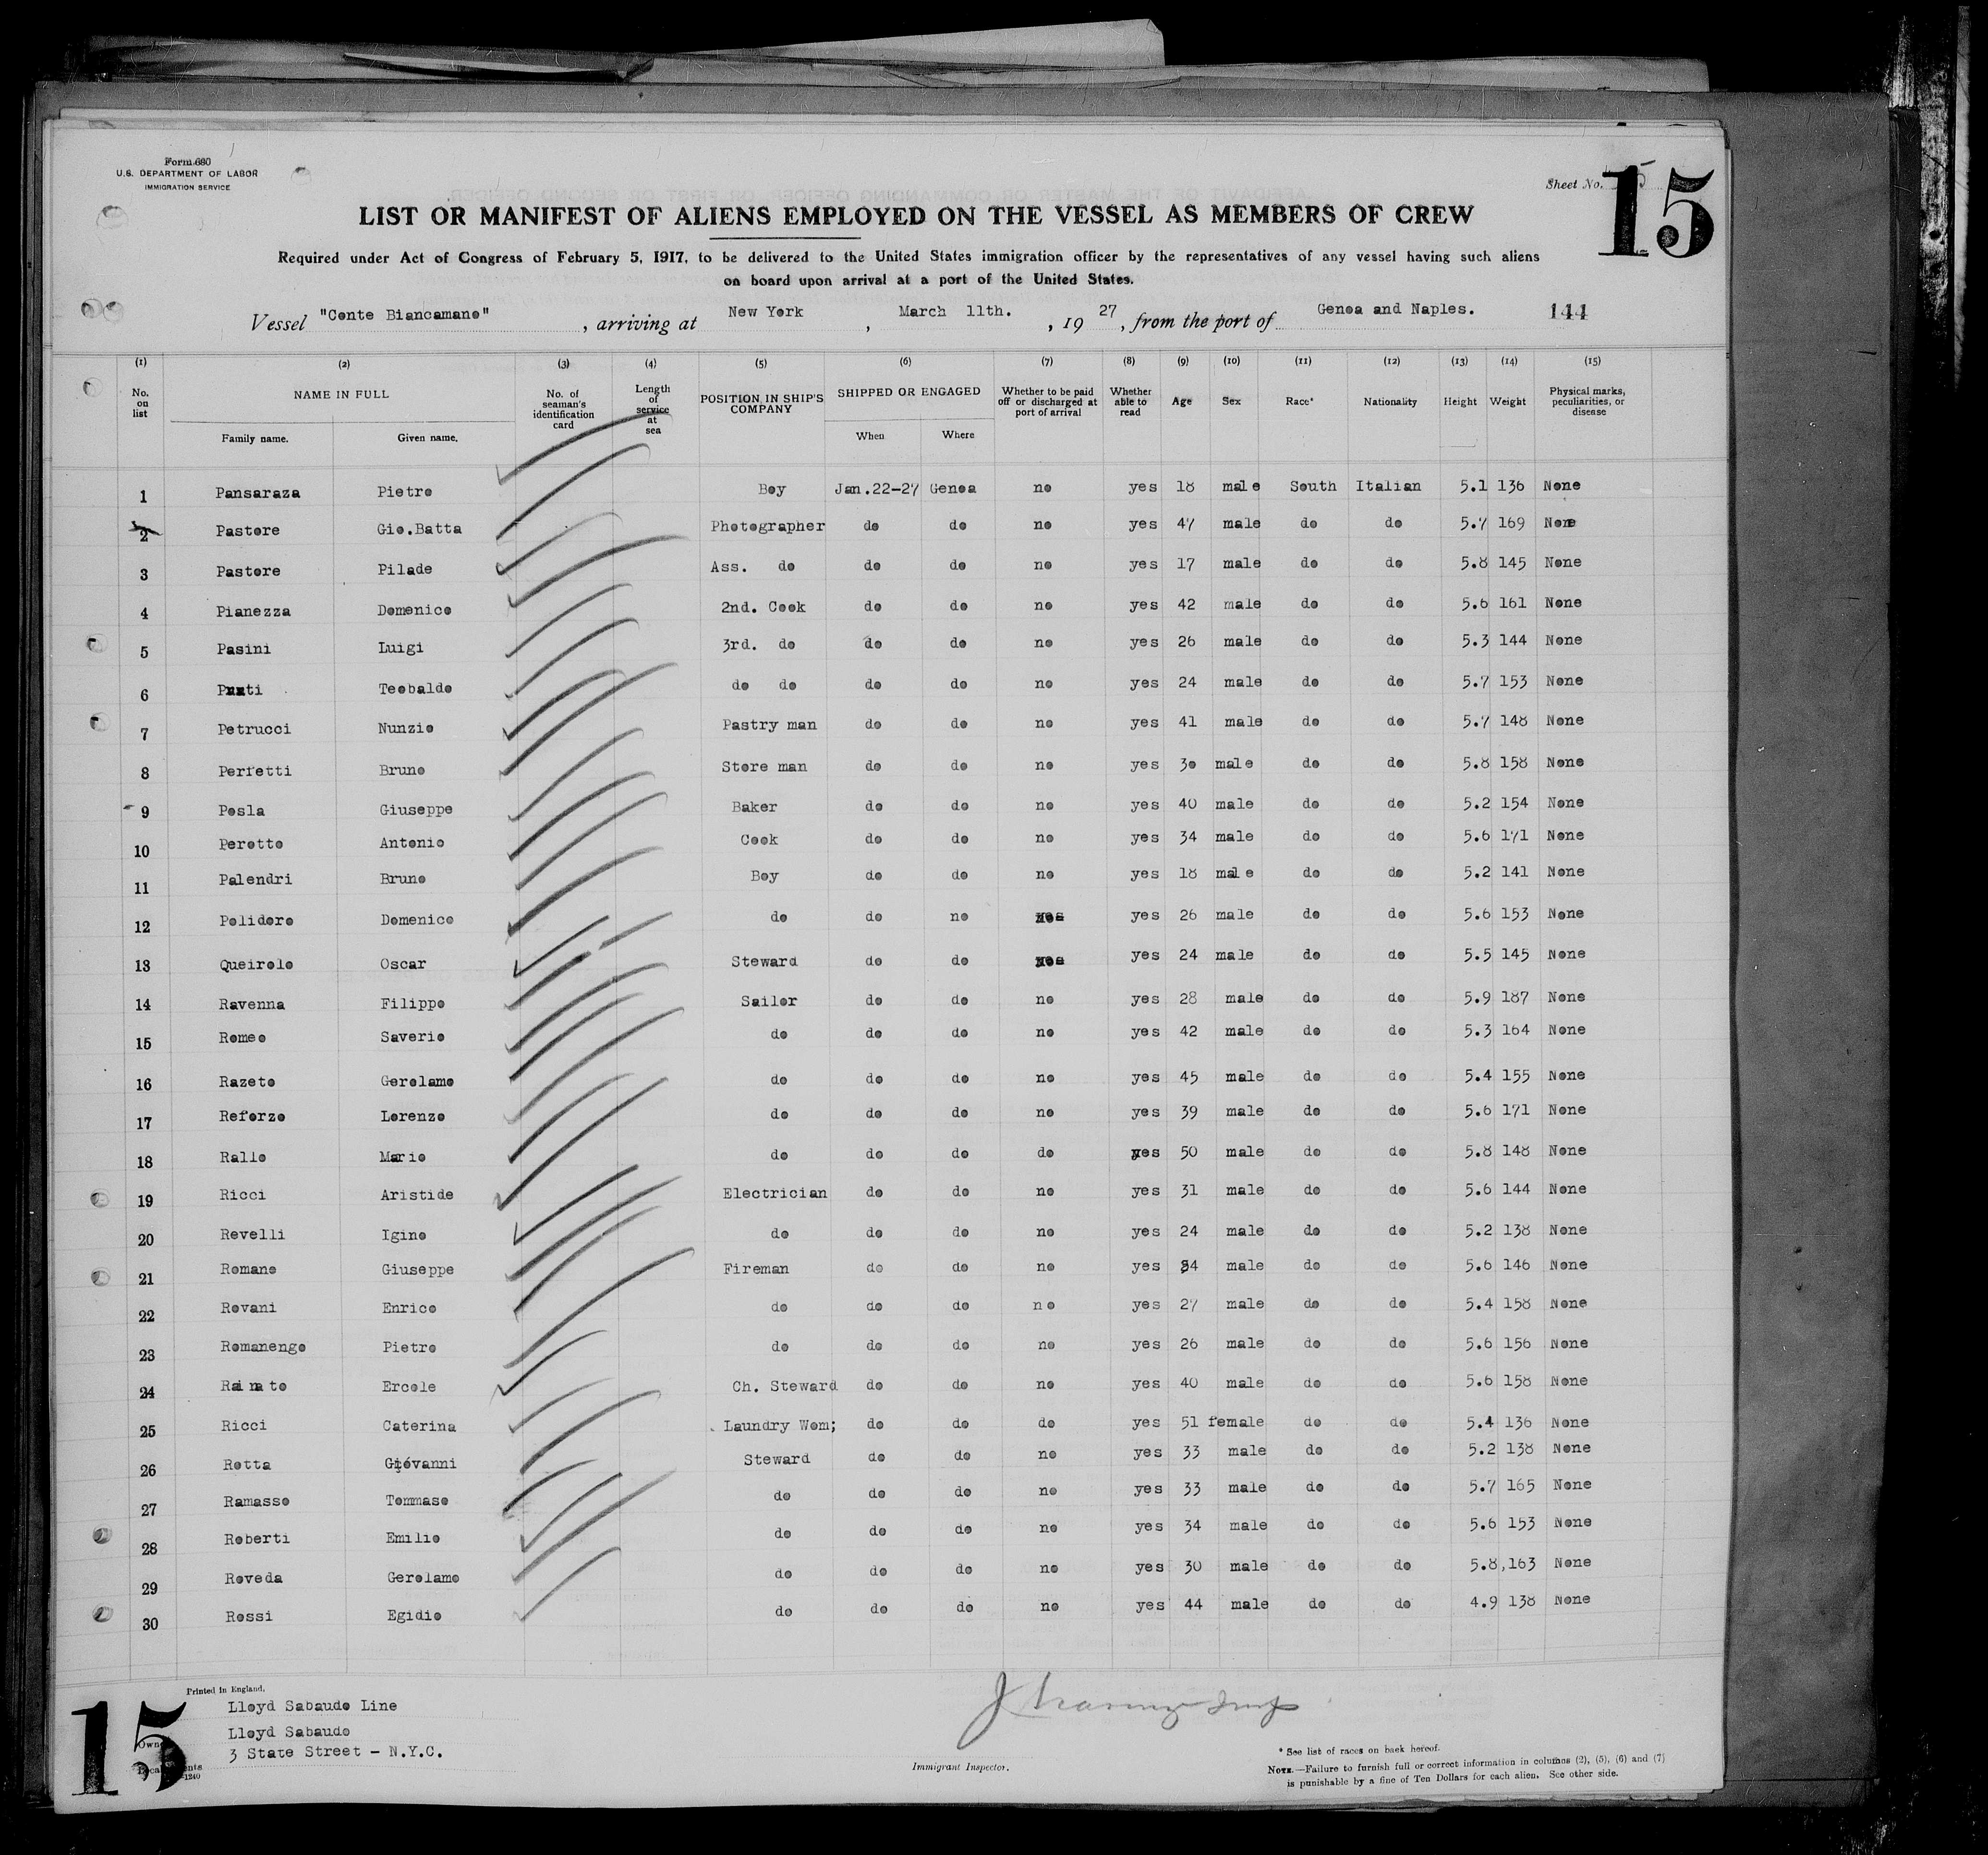 Form 680
U.S. DEPARTMENT OF LABOR
IMMIGRATION SERVICE
Sheet No.
15
LIST OR MANIFEST OF ALIENS EMPLOYED ON THE VESSEL AS MEMBERS OF CREW
Required under Act of Congress of February 5, 1917, to be delivered to the United States immigration officer by the representatives of any vessel having such aliens
on board upon arrival at a port of the United States.
Vessel "Conte Biancamano", arriving at New York, March 11th., 1927, from the port of Genoa and Naples. 144
(1) (2) (3) (4) (5) (6) (7) (8) (9) (10) (11) (12) (13) (14) (15)
No. on list NAME IN FULL Family name. Given name. No. of seaman's identification card Length of service at sea POSITION IN SHIP'S COMPANY SHIPPED OR ENGAGED When Where Whether to be paid off or discharged at port of arrival Whether able to read Age Sex Race* Nationality Height Weight Physical marks, peculiarities, or disease
1 Pansaraza Pietro Boy Jan.22-27 Genoa no yes 18 male South Italian 5.1 136 None
2 Pastore Gio.Batta Photographer do do no yes 47 male do do 5.7 169 None
3 Pastore Pilade Ass. do do do no yes 17 male do do 5.8 145 None
4 Pianezza Domenico 2nd. Cook do do no yes 42 male do do 5.6 161 None
5 Pasini Luigi 3rd. do do do no yes 26 male do do 5.3 144 None
6 Teobaldo do do do do no yes 24 male do do 5.7 153 None
7 Petrucci Nunzio Pastry man do do no yes 41 male do do 5.7 148 None
8 Perfetti Bruno Store man do do no yes 30 male do do 5.8 158 None
9 Posla Giuseppe Baker do do no yes 40 male do do 5.2 154 None
10 Perotto Antonio Cook do do no yes 34 male do do 5.6 171 None
11 Palendri Bruno Boy do do no yes 18 male do do 5.2 141 None
12 Polidoro Domenico do do no yes 26 male do do 5.6 153 None
13 Queirolo Oscar Steward do do yes 24 male do do 5.5 145 None
14 Ravenna Filippo Sailor do do no yes 28 male do do 5.9 187 None
15 Romeo Saverio do do do no yes 42 male do do 5.3 164 None
16 Razeto Gerolamo do do do no yes 45 male do do 5.4 155 None
17 Reforzo Lorenzo do do do no yes 39 male do do 5.6 171 None
18 Rallo Mario do do do do yes 50 male do do 5.8 148 None
19 Ricci Aristide Electrician do do no yes 31 male do do 5.6 144 None
20 Revelli Igino do do do no yes 24 male do do 5.2 138 None
21 Romano Giuseppe Fireman do do no yes 34 male do do 5.6 146 None
22 Rovani Enrico do do do no yes 27 male do do 5.4 158 None
23 Romanengo Pietro do do do no yes 26 male do do 5.6 156 None
24 Rainato Ercole Ch. Steward do do no yes 40 male do do 5.6 158 None
25 Ricci Caterina Laundry Wom; do do do yes 51 female do do 5.4 136 None
26 Rotta Giovanni Steward do do no yes 33 male do do 5.2 138 None
27 Ramasso Tommaso do do do no yes 33 male do do 5.7 165 None
28 Roberti Emilio do do do no yes 34 male do do 5.6 153 None
29 Roveda Gerolamo do do do no yes 30 male do do 5.8, 163 None
30 Rossi Egidio do do do no yes 44 male do do 4.9 138 None
Printed in England.
15
Lloyd Sabaudo Line
Lloyd Sabaudo
3 State Street - N.Y.C.
Immigrant Inspector.
* See list of races on back hereof.
NOTE.—Failure to furnish full or correct information in columns (2), (5), (6) and (7)
is punishable by a fine of Ten Dollars for each alien. See other side.